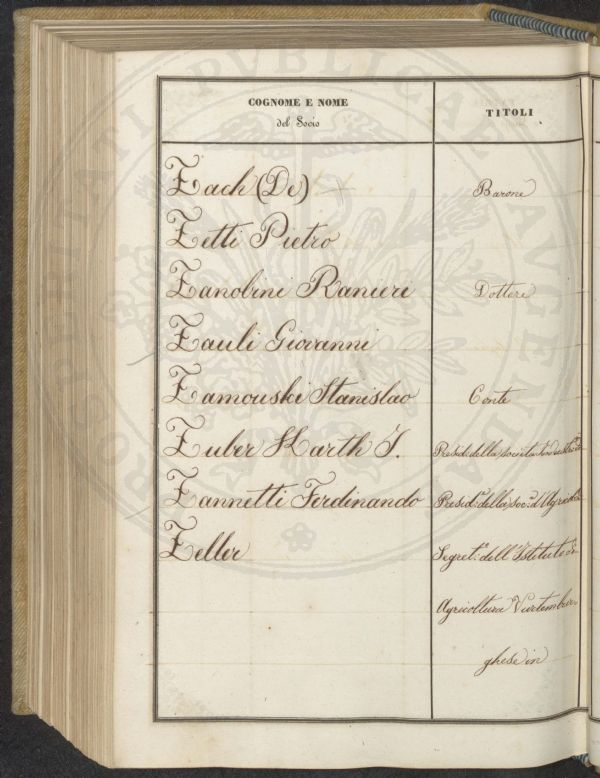 COGNOME E NOME
del Socio
TITOLI
Zach (De) Barone
Zetti Pietro
Zanobini Ranieri Dottore
Zauli Giovanni
Zamouski Stanislao Conte
Zuber Karth J. Presid. della società
Zannetti Ferdinando Presid.e della Soc.a d'Agricol
Zeller Segret.o dell'Istituto di
Agricoltura Vurtember
ghese in
PROSPERITATI PVBLICAE AVGENDAE